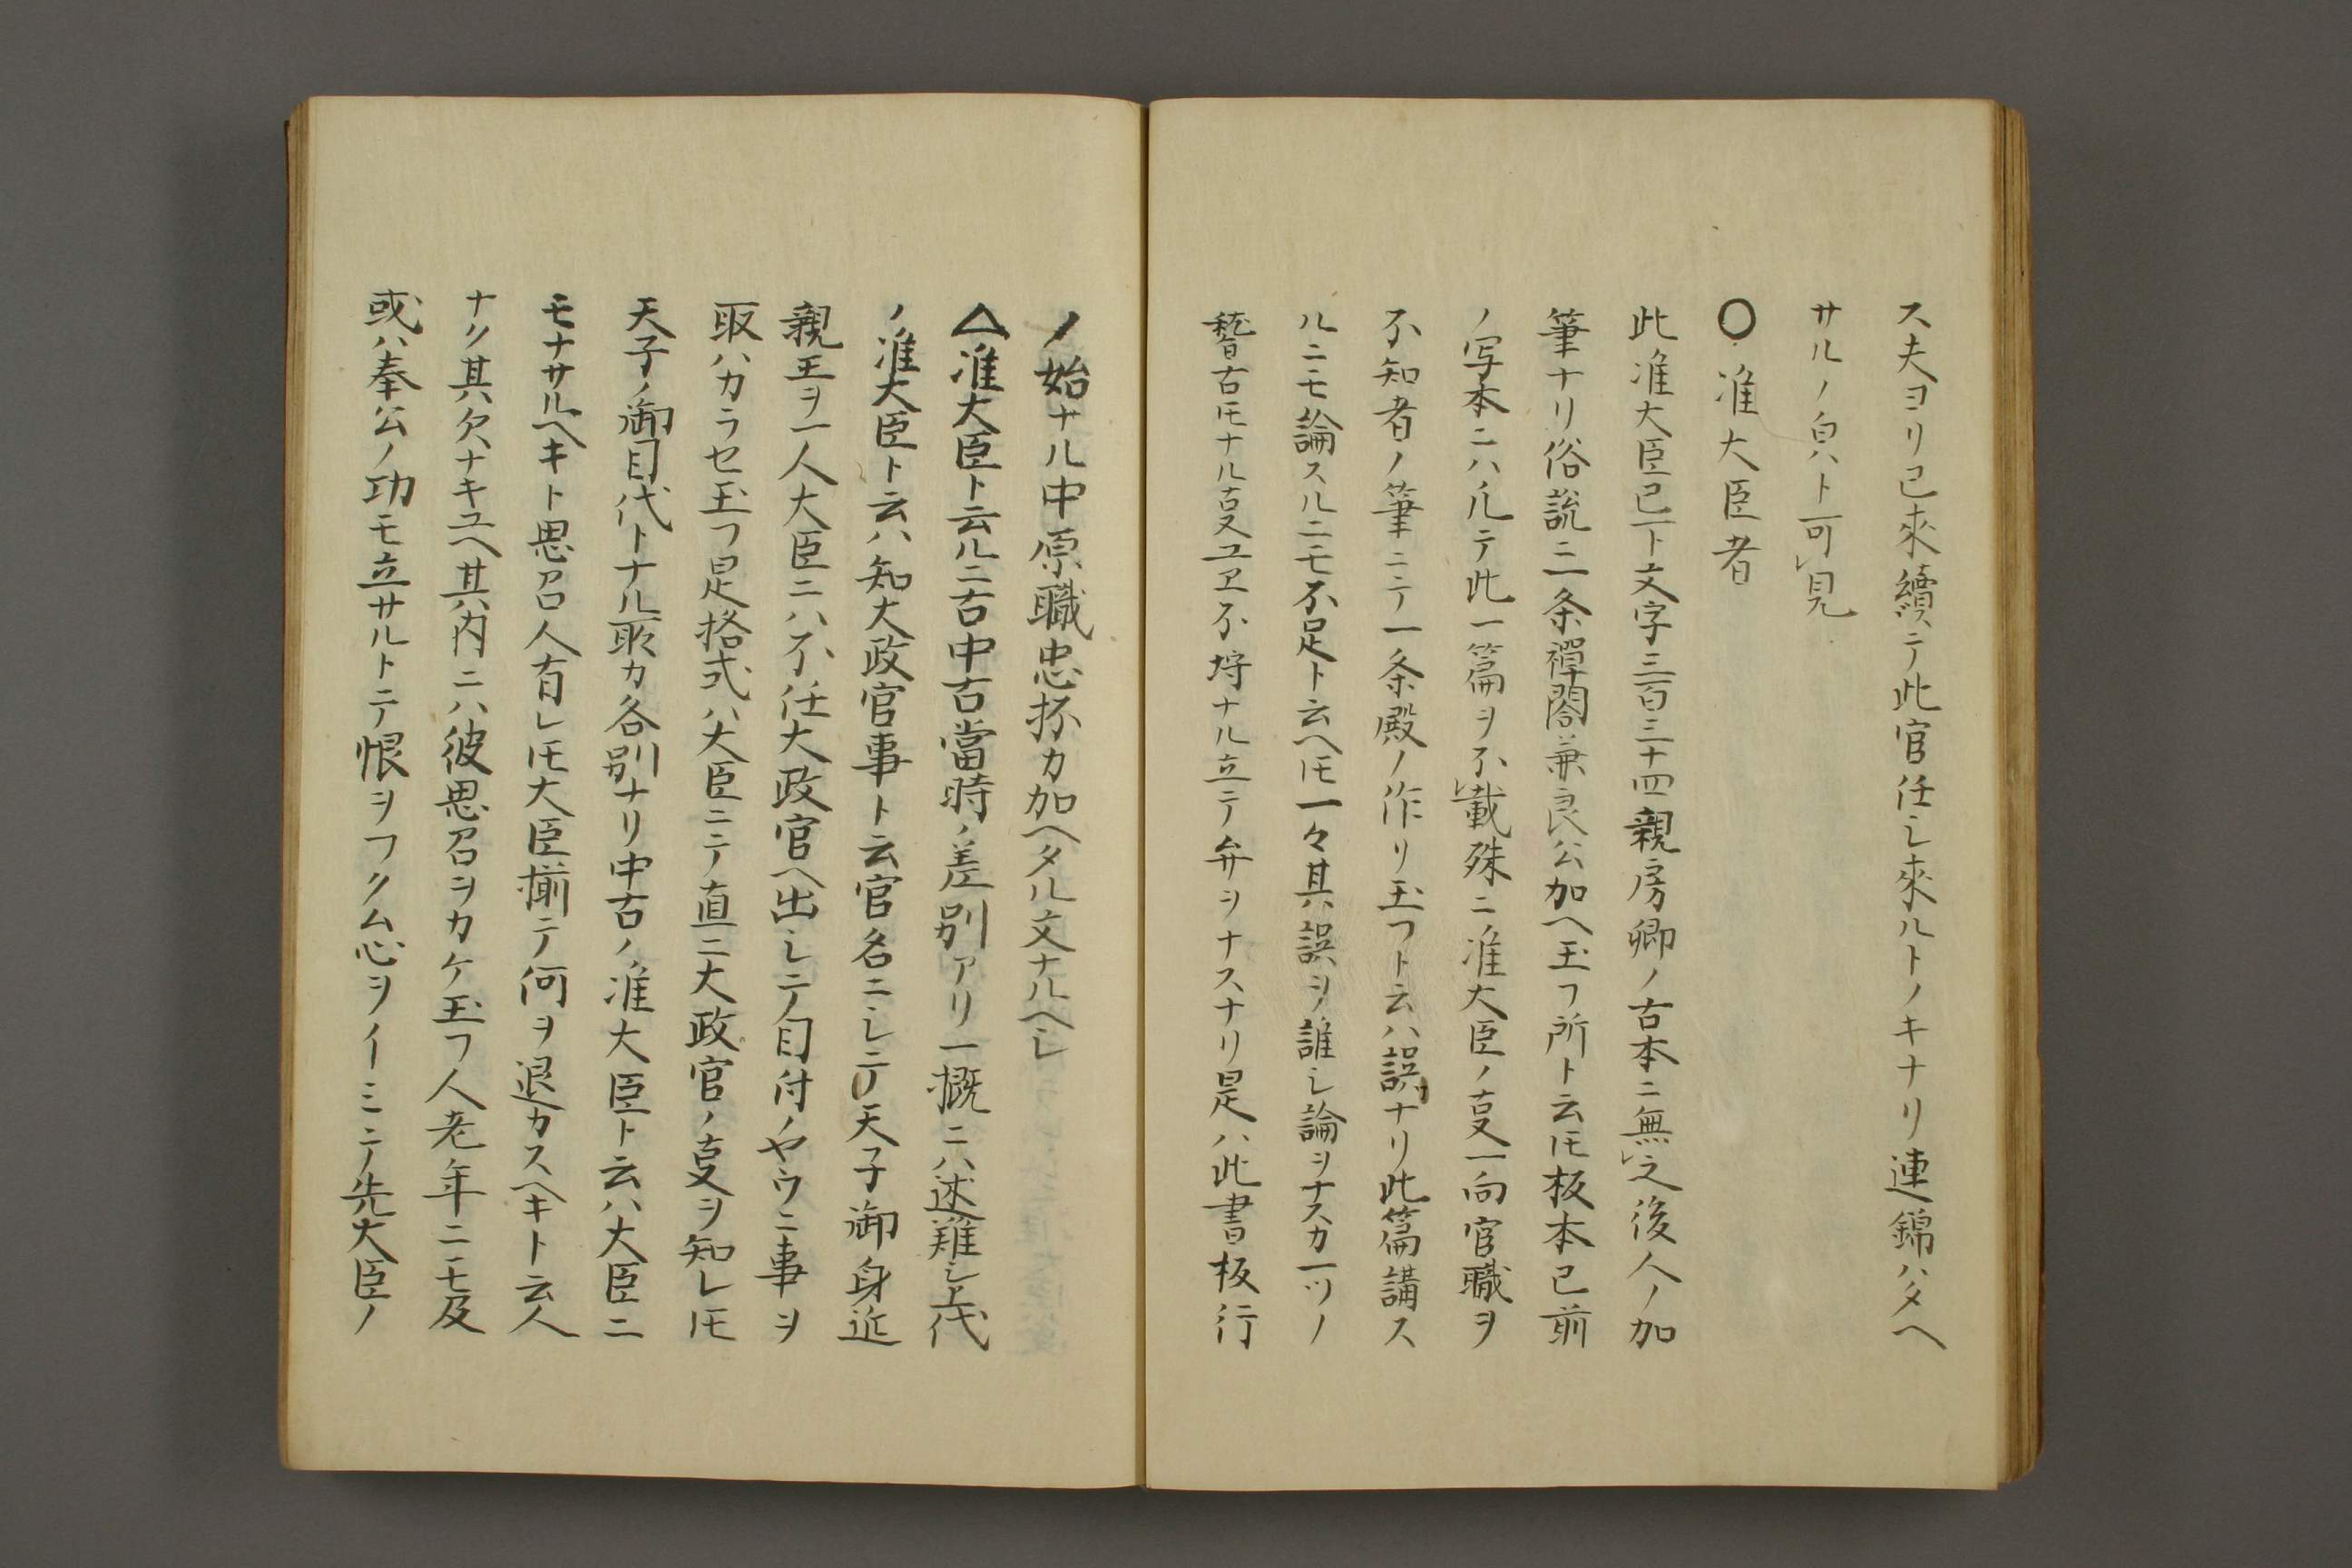 ス夫ヨリ已來續ニテ此官任シ來ルトノキナリ連錦ハタヘ
サルノ皃ト可レ見
〇准大臣者
此准大臣已下文字三百三十四親房卿ノ古本ニ無レ之後人ノ加
筆ナリ俗説ニ一条禪閤兼良公加ヘ玉フ所ト云ヒ板本已前
ノ写本ニハ凡テ此一篇ヲ不レ載殊ニ准大臣ノ㕝一向官職ヲ
不知者ノ筆ニテ一条殿ノ作リ玉フト云ハ誤リナリ此篇講ス
ルニモ論スルニモ不足ト云ヘ𪜈一々其誤ヲ誰シ論ヲナスカ一ツノ
稽古𪜈ナル㕝ユヱ不埒ナル立テ弁ヲナスナリ是ハ此書板行
ノ始ナル中原職忠抔カ加ヘタル文ナルヘシ
△准大臣ト云ルニ古中古當時ノ差別アリ一概ニハ述難シ上代
ノ准大臣ト云ハ知大政官事ト云官名ニシテ天子御身近
親王ヲ一人大臣ニハ不任大政官ヘ出シテ目付ノヤウニ事ヲ
取ハカラセ玉フ是格式ハ大臣ニテ直ニ大政官ノ㕝ヲ知レ𪜈
天子ノ御目代トナル取カ各別ナリ中古ノ准大臣ト云ハ大臣ニ
モナサルヘキト思召人有レ𪜈大臣揃テ何ヲ退カスヘキト云人
ナク其欠ナキユヘ其内ニハ彼思召ヲカケ玉フ人老年ニモ及
或ハ奉公ノ功モ立サルトテ恨ヲフクム心ヲイミテ先大臣ノ